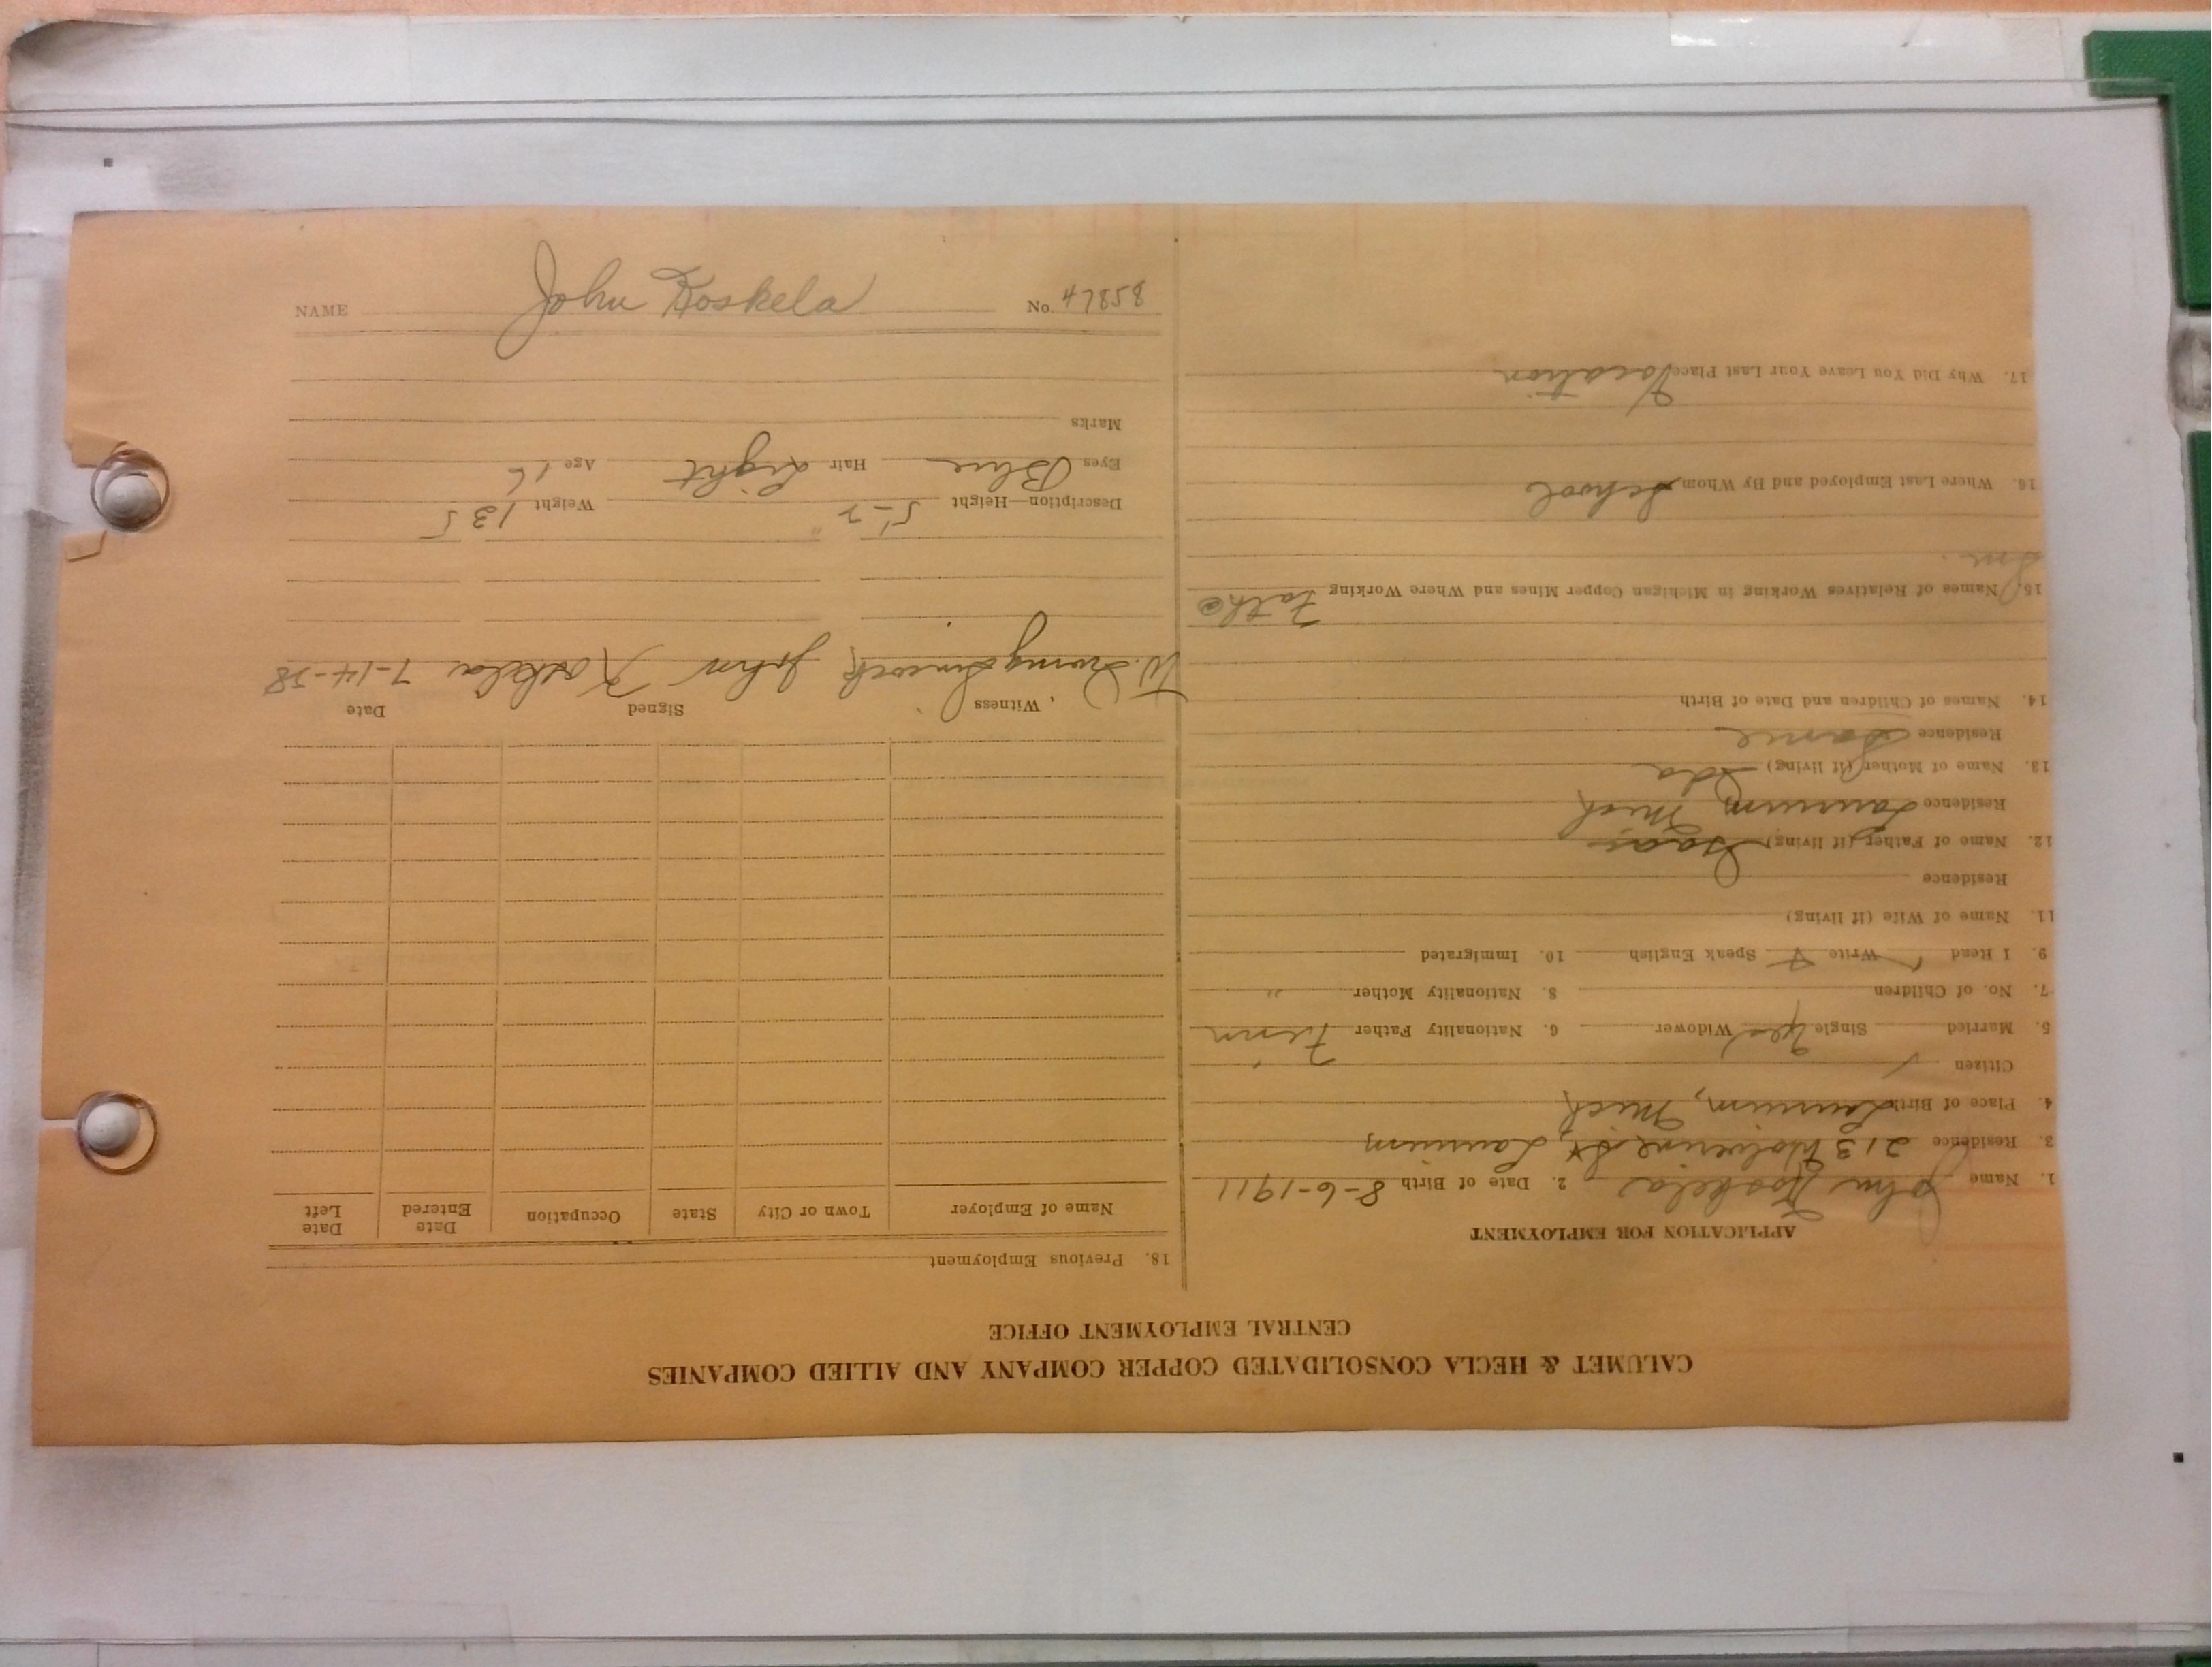 CALUMET & HECLA CONSOLIDATED COPPER COMPANY AND ALLIED COMPANIES
CENTRAL EMPLOYMENT OFFICE
APPLICATION FOR EMPLOYMENT
1. Name John Koskela 2. Date of Birth 8-6-1911
3. Residence 213 Wolverine St, Laurium
4. Place of Birth Laurium, Mich
Citizen
5. Married Single Yes Widower 6. Nationality Father Finn
7. No. of Children 8. Nationality Mother "
9. I Read Write Speak English 10. Immigrated
11. Name of Wife (if living)
Residence
12. Name of Father (if living)
Residence Laurium Mich
13. Name of Mother (if living) Ida
Residence Same
14. Names of Children and Date of Birth
15. Names of Relatives Working in Michigan Copper Mines and Where Working Father
16. Where Last Employed and By Whom School
17. Why Did You Leave Your Last Place Vacation
18. Previous Employment
Name of Employer Town or City State Occupation Date Entered Date Left
Witness Signed Date
W. John Koskela 7-14-
Description—Height 5'-7" Weight 135
Eyes Blue Hair Light Age 16
Marks
NAME John Koskela No. 47858